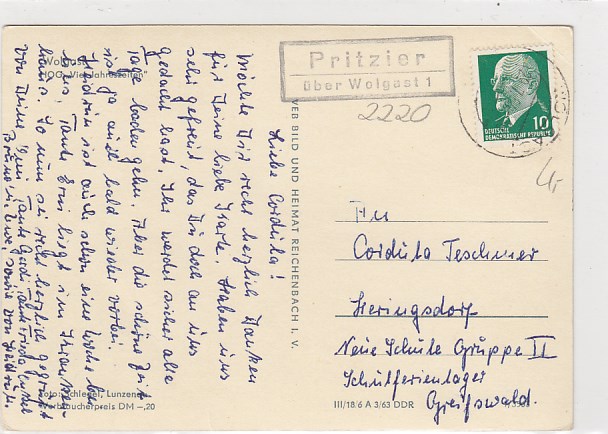 Wolgast
HOG „Vier Jahreszeiten"
Liebe Cordula!
Möchte Dir recht herzlich danken
für Deine liebe Karte. Haben uns
sehr gefreut, das Du doch an uns
gedacht hast. Ihr werdet sicher alle
Tage baden gehn. Aber die schöne Zeit
ist ja auch bald wieder vorbei.
ist auch schon eine Woche bei
uns. Tante Erni liegt im Kranken-
haus. So nun sei recht herzlich gegrüßt
von Deiner Tante Gerdi, Onkel
Bruno u. Uwe, sowie von
Foto: Schlegel, Lunzenau
Verbraucherpreis DM –,20
VEB BILD UND HEIMAT REICHENBACH I. V.
Pritzier
über Wolgast 1
2220
10
DEUTSCHE
DEMOKRATISCHE REPUBLIK
4,-
An
Cordula Teschner
Heringsdorf
Neue Schule Gruppe II
Schulferienlager
Greifswald.
III/18/6 A 3/63 DDR